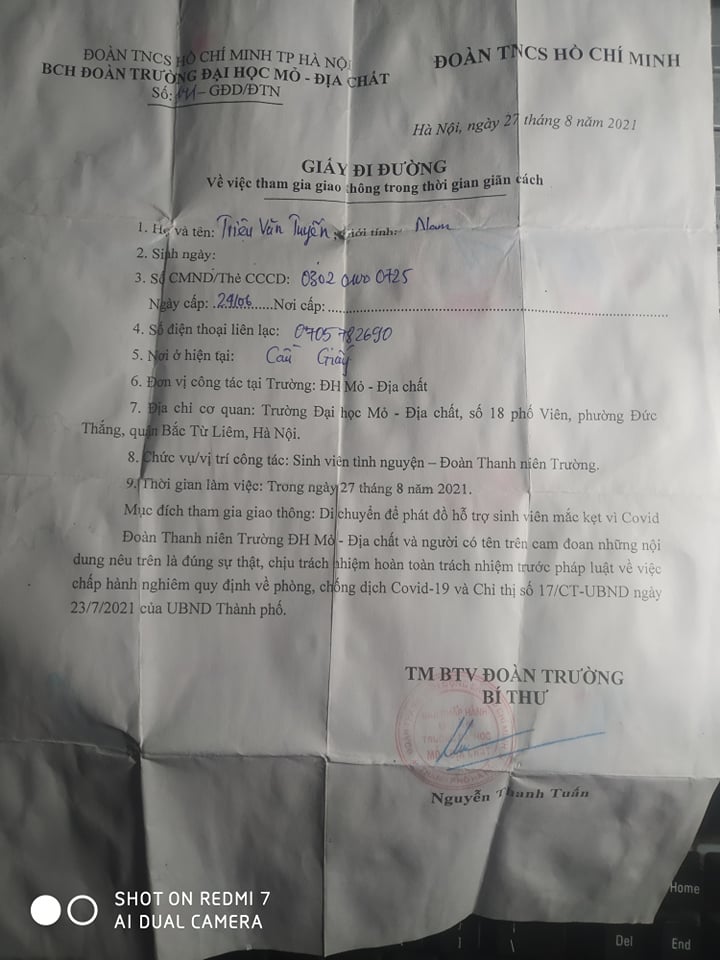 ĐOÀN TNCS HỒ CHÍ MINH TP HÀ NỘI
BCH ĐOÀN TRƯỜNG ĐẠI HỌC MỎ - ĐỊA CHẤT
Số: - GĐD/ĐTN
ĐOÀN TNCS HỒ CHÍ MINH
Hà Nội, ngày 27 tháng 8 năm 2021
GIẤY ĐI ĐƯỜNG
Về việc tham gia giao thông trong thời gian giãn cách
1. Họ và tên: Triệu Văn Tuyến giới tính: Nam
2. Sinh ngày:
3. Số CMND/Thẻ CCCD: 0302 0725
Ngày cấp: 24/06 Nơi cấp:
4. Số điện thoại liên lạc: 0705782690
5. Nơi ở hiện tại: Cầu Giấy
6. Đơn vị công tác tại Trường: ĐH Mỏ - Địa chất
7. Địa chỉ cơ quan: Trường Đại học Mỏ - Địa chất, số 18 phố Viên, phường Đức
Thắng, quận Bắc Từ Liêm, Hà Nội.
8. Chức vụ/vị trí công tác: Sinh viên tình nguyện – Đoàn Thanh niên Trường.
9. Thời gian làm việc: Trong ngày 27 tháng 8 năm 2021.
Mục đích tham gia giao thông: Di chuyển để phát đồ hỗ trợ sinh viên mắc kẹt vì Covid
Đoàn Thanh niên Trường ĐH Mỏ - Địa chất và người có tên trên cam đoan những nội
dung nêu trên là đúng sự thật, chịu trách nhiệm hoàn toàn trách nhiệm trước pháp luật về việc
chấp hành nghiêm quy định về phòng, chống dịch Covid-19 và Chỉ thị số 17/CT-UBND ngày
23/7/2021 của UBND Thành phố.
TM BTV ĐOÀN TRƯỜNG
BÍ THƯ
Nguyễn Thanh Tuấn
Home
Del
End
SHOT ON REDMI 7
AI DUAL CAMERA